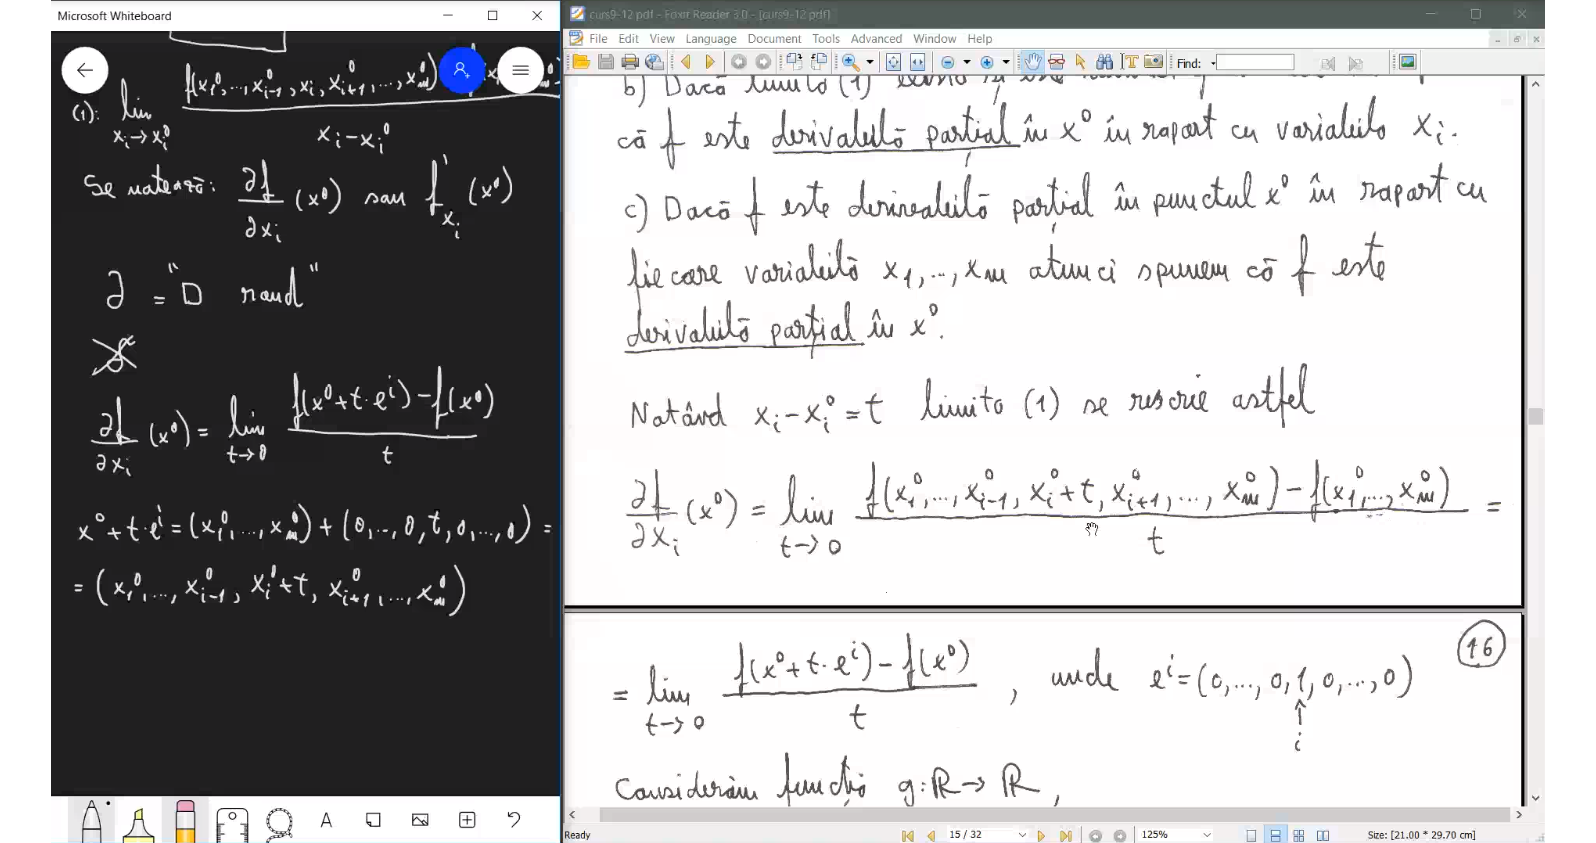 Microsoft Whiteboard
(1): lim x_i→x_i^0 f(x_1^0,...,x_{i-1}^0, x_i, x_{i+1}^0,...,x_m^0)
x_i - x_i^0
Se notează: ∂f/∂x_i (x^0) sau f'_{x_i} (x^0)
∂ = "D rond"
∂f/∂x_i (x^0) = lim t→0 f(x^0+t·e^i) - f(x^0) / t
x^0 + t·e^i = (x_1^0,...,x_m^0) + (0,...,0,t,0,...,0) =
= (x_1^0,...,x_{i-1}^0, x_i^0+t, x_{i+1}^0,...,x_m^0)
A
curs9-12 pdf - Foxit Reader 3.0 - [curs9-12 pdf]
File Edit View Language Document Tools Advanced Window Help
Find:
b) Dacă limita (1) există și este
că f este derivabilă parțial în x^0 în raport cu variabila x_i.
c) Dacă f este derivabilă parțial în punctul x^0 în raport cu
fiecare variabilă x_1,..,x_m atunci spunem că f este
derivabilă parțial în x^0.
Notând x_i - x_i^0 = t limita (1) se rescrie astfel
∂f/∂x_i (x^0) = lim t→0 f(x_1^0,...,x_{i-1}^0, x_i^0+t, x_{i+1}^0,..., x_m^0) - f(x_1^0,...,x_m^0) / t =
16
= lim t→0 f(x^0+t·e^i) - f(x^0) / t , unde e^i=(0,...,0,1,0,...,0)
↑
i
Considerăm funcția g:ℝ→ℝ,
Ready 15 / 32 125% Size: [21.00 * 29.70 cm]